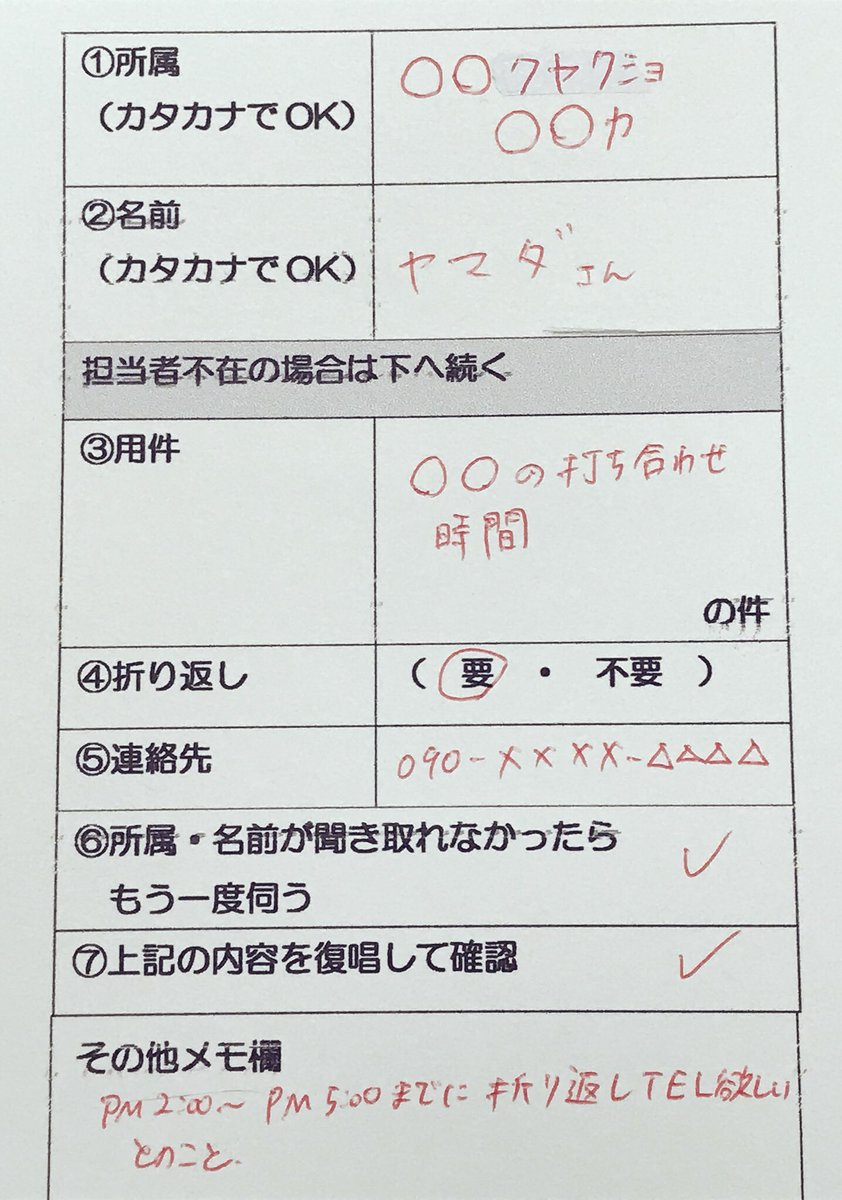 ①所属
（カタカナでOK）
〇〇クヤクショ
〇〇カ
②名前
（カタカナでOK）
ヤマダさん
担当者不在の場合は下へ続く
③用件
〇〇の打ち合わせ
時間
の件
④折り返し
（ 要 ・ 不要 ）
⑤連絡先
090-××××-△△△△
⑥所属・名前が聞き取れなかったら
もう一度伺う
✓
⑦上記の内容を復唱して確認
✓
その他メモ欄
PM2:00～PM5:00までに折り返しTEL欲しい
とのこと.